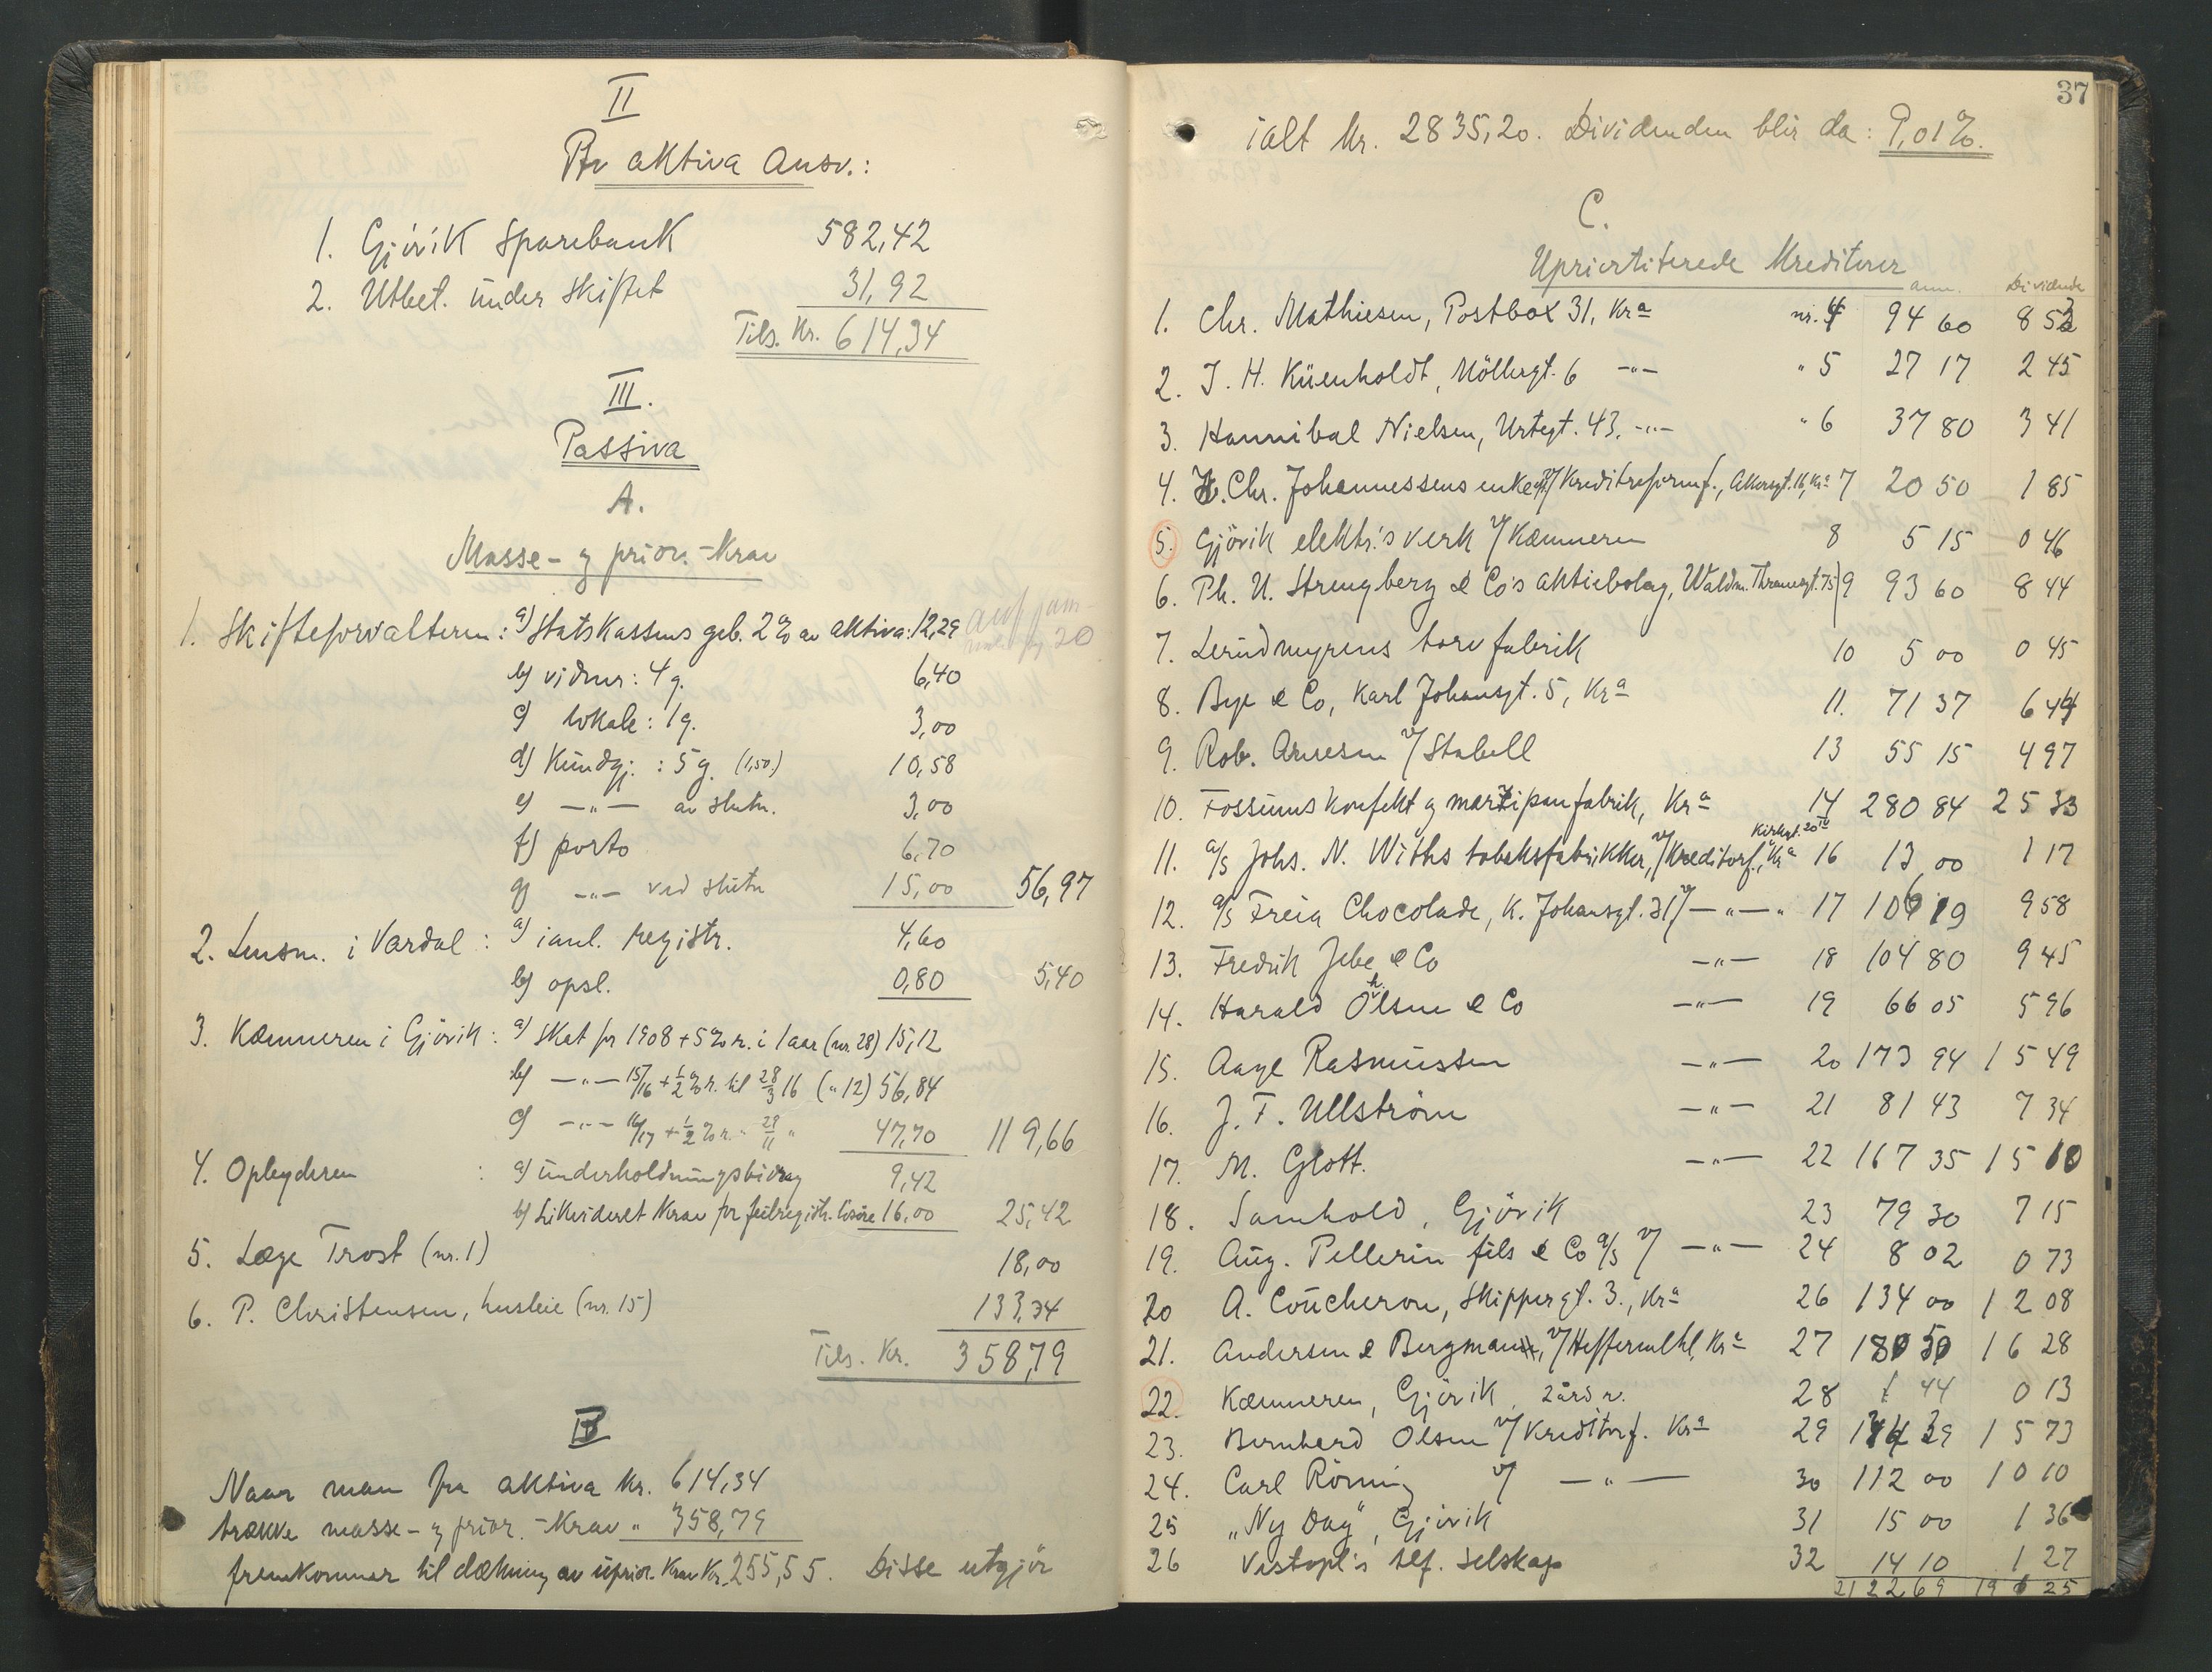 II
Pr aktiva Ansv.:
1. Gjövik Sparebank 582,42
2. Utbet. under skiftet 31,92
Tils. Kr. 614,34
III.
Passiva
A.
Masse- og prior.-Krav
1. Skifteforvalteren: a) Statskassens geb. 2% av aktiva: 12,29
b) vidner: 4 g. 6,40
c) lokale: 1 g. 3,00
d) Kundgj.: 5 g. (1,50.) 10,58
e) —"— av slutn. 3,00
f) porto 6,70
g) —"— ved slutn 15,00 56,97
2. Lensm. i Vardal: a) ianl. registr. 4,60
b) opsl. 0,80 5,40
3. Kæmneren i Gjövik: a) Skat for 1908 + 5% r. i 1 aar (nr. 28) 15,12
b) —"— 15/16 + 1/2 % r. til 28/3 16 („ 12) 56,84
c) —"— 16/17 + 1/2 % r. " 28/11 " 47,70 119,66
4. Opbyderen : a) underholdningsbidrag 9,42
b) Likvideret Krav for feilregistr. lösöre 16,00 25,42
5. Læge Trost (nr. 1) 18,00
6. P. Christensen, husleie (nr. 15) 133,34
Tils. Kr. 358,79
B
Naar man fra aktiva kr. 614,34
trække masse- og prior.-Krav „ 358,79
fremkommer til dækning av uprior. Krav Kr. 255,55. Disse utgjör
37
ialt Kr. 2835,20. Dividenden blir da: 9,01%.
C.
Uprioriterede Kreditorer
anm. Dividende
1. Chr. Mathiesen, Postbox 31, Kra nr. 4 94 60 8 53
2. J. H. Küenholdt, Möllergt. 6 —"— " 5 27 17 2 45
3. Hannibal Nielsen, Urtegt. 43, —"— " 6 37 80 3 41
4. H. Chr. Johannessens enke v/ Kreditreformf., Akersgt. 16, Kra 7 20 50 1 85
5. Gjövik elektr.'s verk v/ Kæmneren 8 5 15 0 46
6. Ph. U. Strengberg & Co's aktiebolag, Waldm. Thranesgt. 75 9 93 60 8 44
7. Lerudmyrens torvfabrik 10 5 00 0 45
8. Bye & Co, Karl Johansgt. 5, Kra 11. 71 37 6 44
9. Rob. Arnesen v/ Stabell 13 55 15 4 97
10. Fossums konfekt og marzipanfabrik, Kra 14 280 84 25 33
11. a/s Johs. N. Withs tobaksfabrikker, v/ Kreditorf., Kirkegt. 20 IV Kra 16 13 00 1 17
12. a/s Freia Chocolade, K. Johansgt. 31 v/ —"— " 17 106 19 9 58
13. Fredrik Jebe & Co —"— 18 104 80 9 45
14. Harald Ohlsen & Co —"— 19 66 05 5 96
15. Aage Rasmussen —"— 20 173 94 15 49
16. J. F. Ullström —"— 21 81 43 7 34
17. M. Glott. —"— 22 167 35 15 10
18. Samhold, Gjövik 23 79 30 7 15
19. Aug. Pellerin fils & Co a/s v/ —"— 24 8 02 0 73
20 A. Coucheron, Skippergt. 3., Kra 26 134 00 12 08
21. Andersen & Bergman, v/ Heffermehl, Kra 27 180 50 16 28
22. Kæmneren, Gjövik, 2 års r. 28 1 44 0 13
23. Bernhard Olsen v/ Kreditorf. Kra 29 174 39 15 73
24. Carl Röning v/ —"— 30 112 00 10 10
25 „Ny Dag", Gjövik 31 15 00 1 36
26 Vestopl's tlf. selskap 32 14 10 1 27
2122 69 191 25